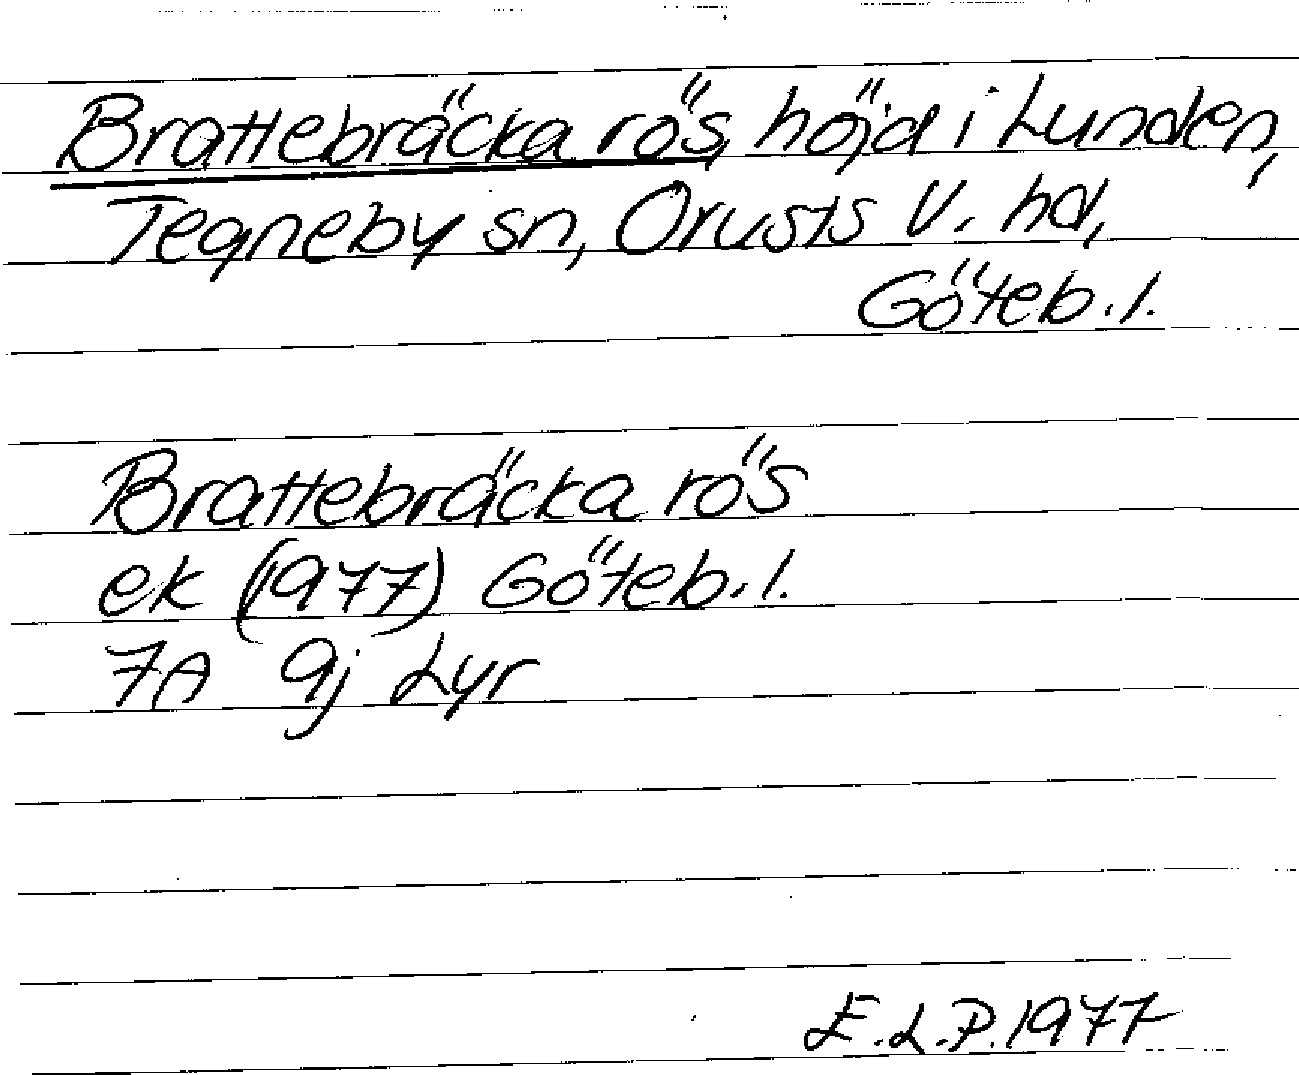 Brattebräcka rös, höjd i Lunden,
Tegneby sn, Orusts V. hd,
Göteb. l.
Brattebräcka rös
ek (1977) Göteb. l.
7A 9j Lyr
E.L.P. 1977